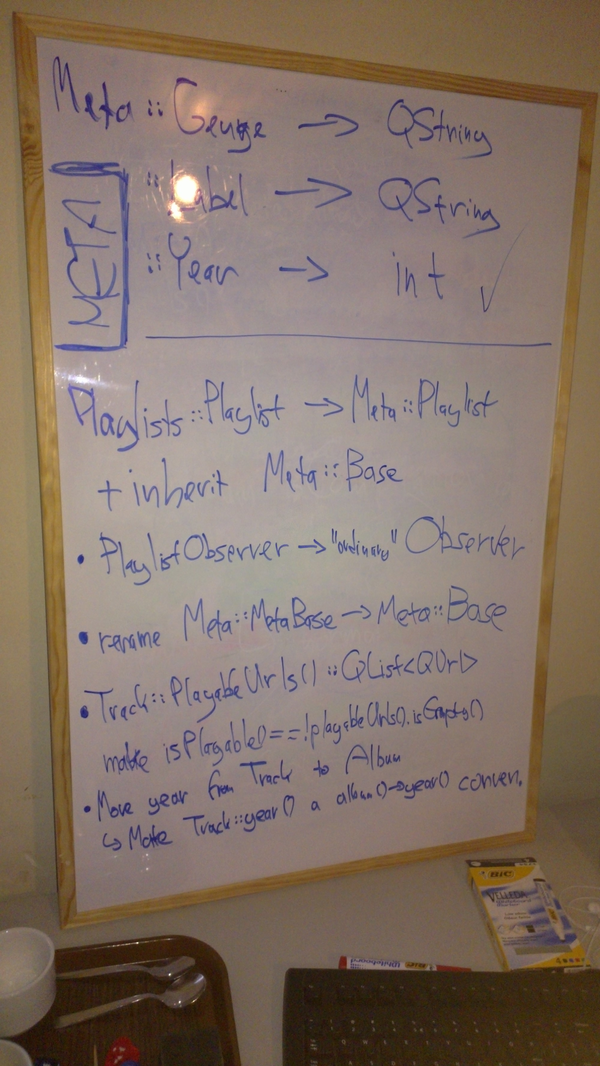 Meta::Genre → QString
::Label → QString
META
::Year → int ✓
Playlists::Playlist → Meta::Playlist
+ inherit Meta::Base
• PlaylistObserver → "ordinary" Observer
• rename Meta::MetaBase → Meta::Base
• Track::PlayabeUrls() :: QList<QUrl>
make isPlayable() == !playabeUrls().isEmpty()
• Move year from Track to Album
↳ Make Track::year() a album()→year() conven.
BIC
VELLEDA
BIC Whiteboard